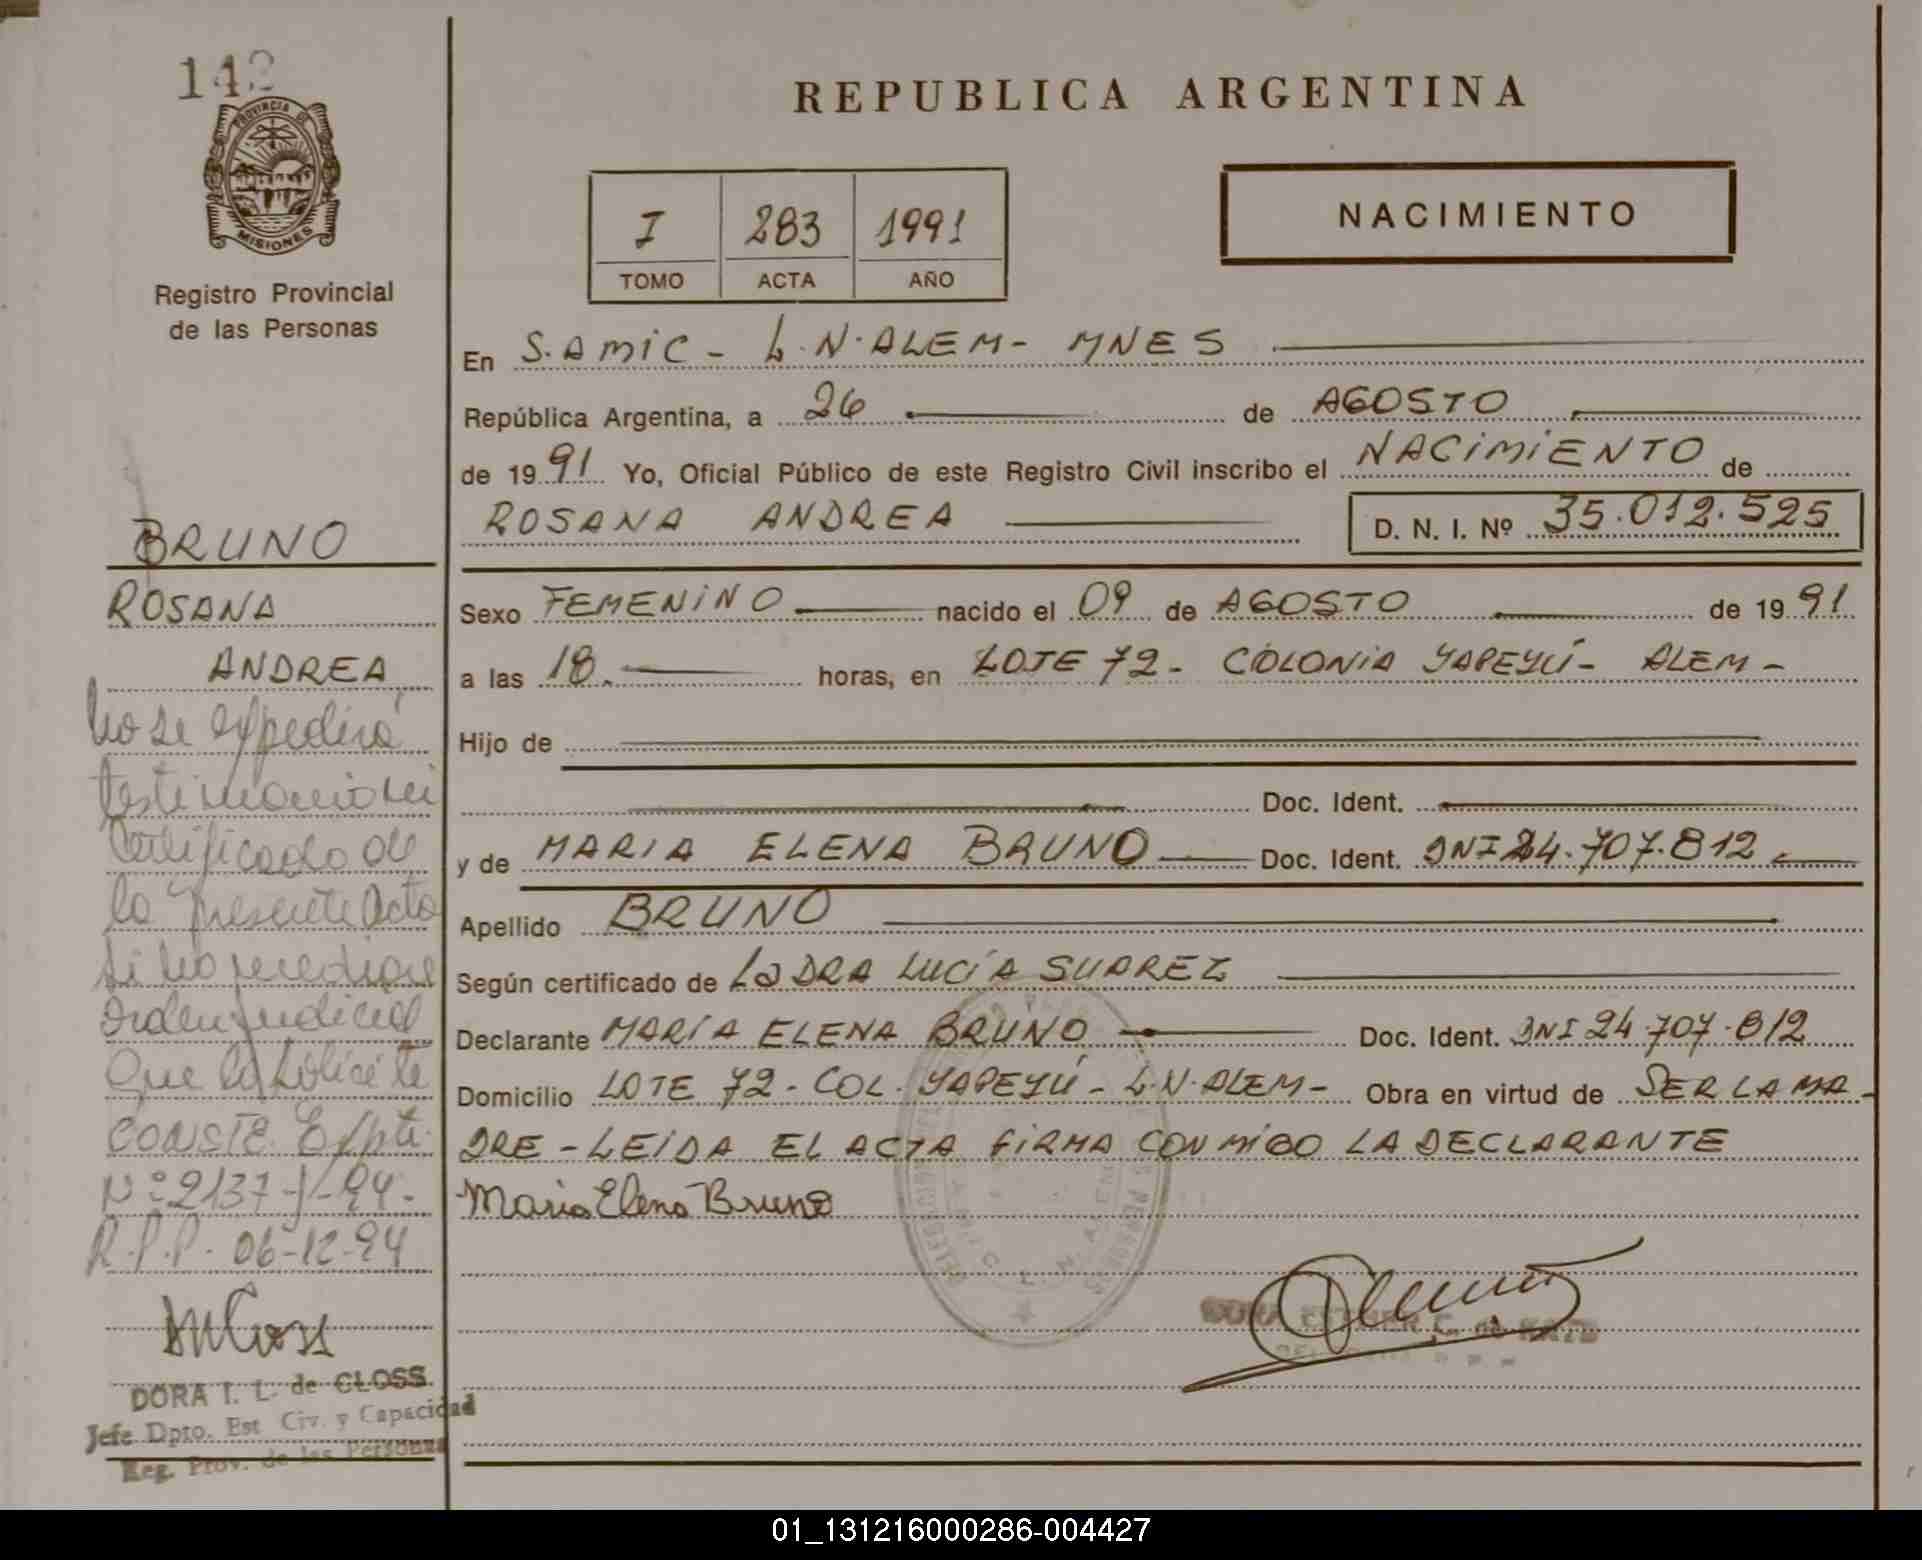 142
PROVINCIA DE
MISIONES
Registro Provincial
de las Personas
BRUNO
ROSANA
ANDREA
No se expedirá
testimonio ni
Certificado de
la presente acta
si no precediere
orden judicial
Que lo solicite
CONSTE. Expte.
Nº 2137-J-94.
R.P.P. 06-12-94
DORA I. L. de CLOSS
Jefe Dpto. Est Civ. y Capacidad
Reg. Prov. de las Personas
REPUBLICA ARGENTINA
I 283 1991
TOMO ACTA AÑO
NACIMIENTO
En S.AMIC - L.N.ALEM - MNES
República Argentina, a 26 de AGOSTO
de 1991 Yo, Oficial Público de este Registro Civil inscribo el NACIMIENTO de
ROSANA ANDREA D. N. I. Nº 35.012.525
Sexo FEMENINO nacido el 09 de AGOSTO de 1991
a las 18. horas, en LOTE 72 - COLONIA YAPEYÚ - ALEM -
Hijo de
Doc. Ident.
y de MARIA ELENA BRUNO Doc. Ident. DNI 24.707.812
Apellido BRUNO
Según certificado de La DRA LUCÍA SUAREZ
Declarante MARÍA ELENA BRUNO Doc. Ident. DNI 24.707.812
Domicilio LOTE 72 - COL. YAPEYÚ - L.N.ALEM - Obra en virtud de SER LA MA-
DRE - LEIDA EL ACTA FIRMA CONMIGO LA DECLARANTE
Maria Elena Bruno
01_131216000286-004427